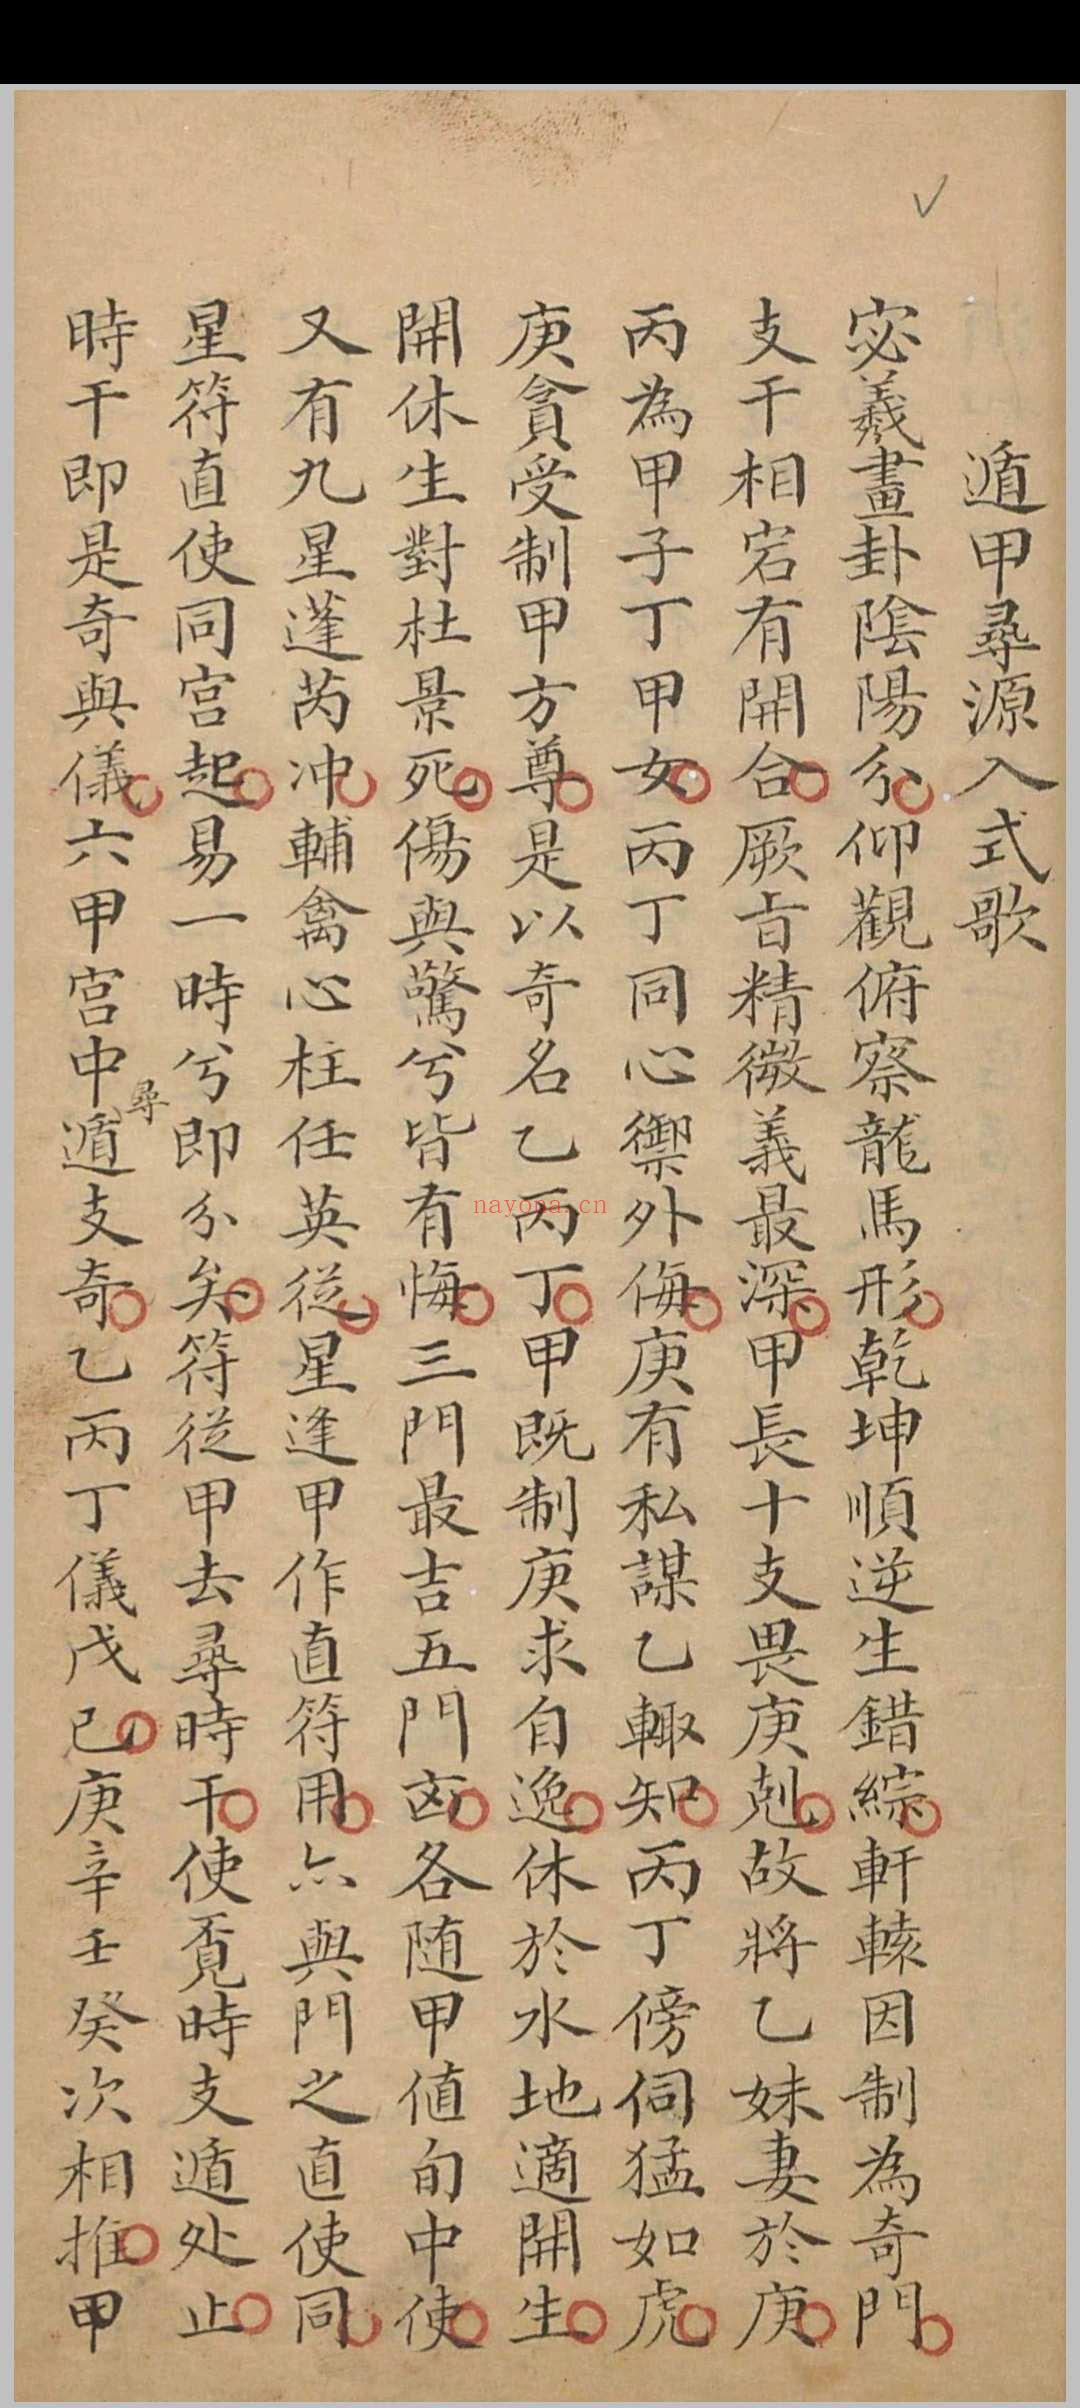 遁甲尋源入式歌
宓羲畫卦陰陽分仰觀俯察龍馬形乾坤順逆生錯綜軒轅因制為奇門
支干相宕有開合厥旨精微義最深甲長十支畏庚剋故將乙妹妻於庚
丙為甲子丁甲女丙丁同心禦外侮庚有私謀乙輙知丙丁傍伺猛如虎
庚貪受制甲方尊是以奇名乙丙丁甲既制庚求自逸休於水地適開生
開休生對杜景死傷與驚兮皆有悔三門最吉五門凶各随甲値旬中使
又有九星蓬芮冲輔禽心柱任英從星逢甲作直符用亦與門之直使同
星符直使同宮起易一時兮即分矣符從甲去尋時干使覓時支遁处止
時干即是奇與儀六甲宮中遁支奇乙丙丁儀戊己庚辛壬癸次相推甲
尋
nayona.cn